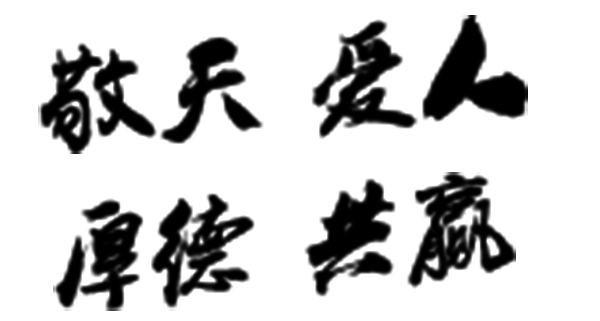 敬天 爱人
厚德 共赢